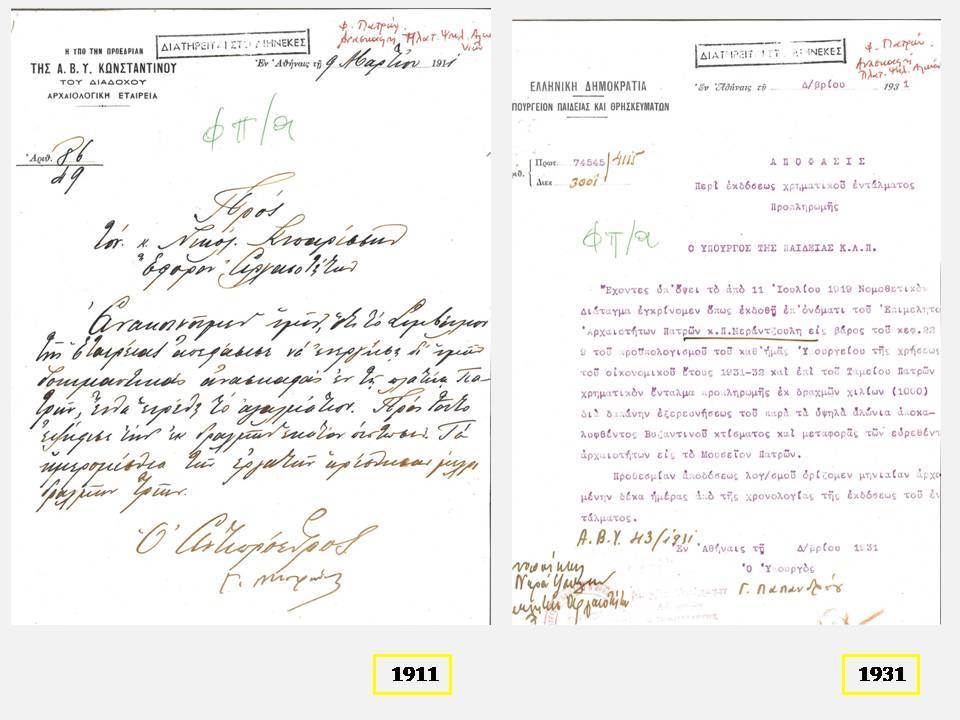 Η ΥΠΟ ΤΗΝ ΠΡΟΕΔΡΙΑΝ
ΤΗΣ Α. Β. Υ. ΚΩΝΣΤΑΝΤΙΝΟΥ
ΤΟΥ ΔΙΑΔΟΧΟΥ
ΑΡΧΑΙΟΛΟΓΙΚΗ ΕΤΑΙΡΕΙΑ
ΔΙΑΤΗΡΕΙΤΑΙ ΣΤΟ ΔΙΗΝΕΚΕΣ
Φ. Πατρών
Ανασκαφή
Πλατ. Ψηλ. Αλω
νιών
Ἐν Ἀθήναις τῇ 9 Μαρτίου 1911
φπ/α
Ἀριθ. 86
49
Πρὸς
τὸν κ. Νικόλ. Κυπαρίσσην
Ἔφορον Ἀρχαιοτήτων
Ἀνακοινοῦμεν ὑμῖν, ὅτι τὸ Συμβούλιον
τῆς Ἑταιρείας ἀπεφάσισε νὰ ἐνεργήσῃ δι' ὑμῶν
δοκιμαστικὰς ἀνασκαφὰς ἐν τῇ πλατείᾳ Πα-
τρῶν, ἔνθα εὑρέθη τὸ ἀγαλμάτιον. Πρὸς τοῦτο
ἐψήφισε τὴν ἐκ δραχμῶν ἑκατὸν πίστωσιν. Τὰ
ἡμερομίσθια τῶν ἐργατῶν ὡρίσθησαν μέχρι
δραχμῶν τριῶν.
Ὁ Ἀντιπρόεδρος
1911
ΕΛΛΗΝΙΚΗ ΔΗΜΟΚΡΑΤΙΑ
ΠΟΥΡΓΕΙΟΝ ΠΑΙΔΕΙΑΣ ΚΑΙ ΘΡΗΣΚΕΥΜΑΤΩΝ
ΔΙΑΤΗΡΕΙΤΑΙ ΣΤΟ ΔΙΗΝΕΚΕΣ
Φ. Πατρών.
Ανασκαφή
Πλατ. Ψηλ. Αλωνίων
Ἐν Ἀθήναις τῇ Δ/βρίου 1931
ριθ. Πρωτ. 74545/4115
Διεκ. 3001
Α Π Ο Φ Α Σ Ι Σ
Περὶ ἐκδόσεως χρηματικοῦ ἐντάλματος
Προπληρωμῆς
φπ/α
Ο ΥΠΟΥΡΓΟΣ ΤΗΣ ΠΑΙΔΕΙΑΣ Κ.Λ.Π.
Ἔχοντες ὑπ'ὄψει τὸ ἀπὸ 11 Ἰουλίου 1919 Νομοθετικὸν
Διάταγμα ἐγκρίνομεν ὅπως ἐκδοθῇ ἐπ'ὀνόματι τοῦ Ἐπιμελητο
Ἀρχαιοτήτων Πατρῶν κ.Π.Νεράντζουλη εἰς βάρος τοῦ κεφ.22
9 τοῦ προϋπολογισμοῦ τοῦ καθ'ἡμᾶς Ὑπουργείου τῆς χρήσεως
τοῦ οἰκονομικοῦ ἔτους 1931-32 καὶ ἐπὶ τοῦ Ταμείου Πατρῶν
χρηματικὸν ἔνταλμα προπληρωμῆς ἐκ δραχμῶν χιλίων (1000)
διὰ δαπάνην ἐξερευνήσεως τοῦ παρὰ τὰ ὑψηλὰ ἁλώνια ἀποκα-
λυφθέντος Βυζαντινοῦ κτίσματος καὶ μεταφορᾶς τῶν εὑρεθέντ
ἀρχαιοτήτων εἰς τὸ Μουσεῖον Πατρῶν.
Προθεσμίαν ἀποδόσεως λογ/σμοῦ ὁρίζομεν μηνιαίαν ἀρχο
μένην δέκα ἡμέρας ἀπὸ τῆς χρονολογίας τῆς ἐκδόσεως τοῦ ἐν
τάλματος.
Α.Β.Υ. 43/1931
Ἐν Ἀθήναις τῇ Δ/μβρίου 1931
Ὁ Ὑπουργὸς
Γ. Παπανδρέου
1931